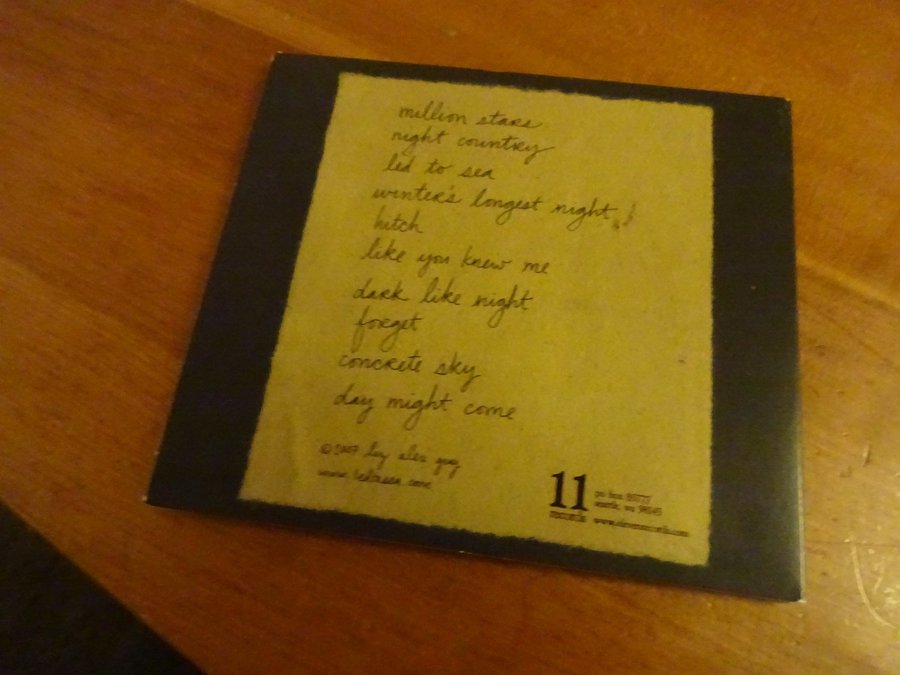 million stars
night country
led to sea
winter's longest night
hitch
like you knew me
dark like night
forget
concrete sky
day might come
© 2007 by alex guy
www.ledtosea.com
11
records
po box
seattle, wa 98145
www.elevenrecords.com